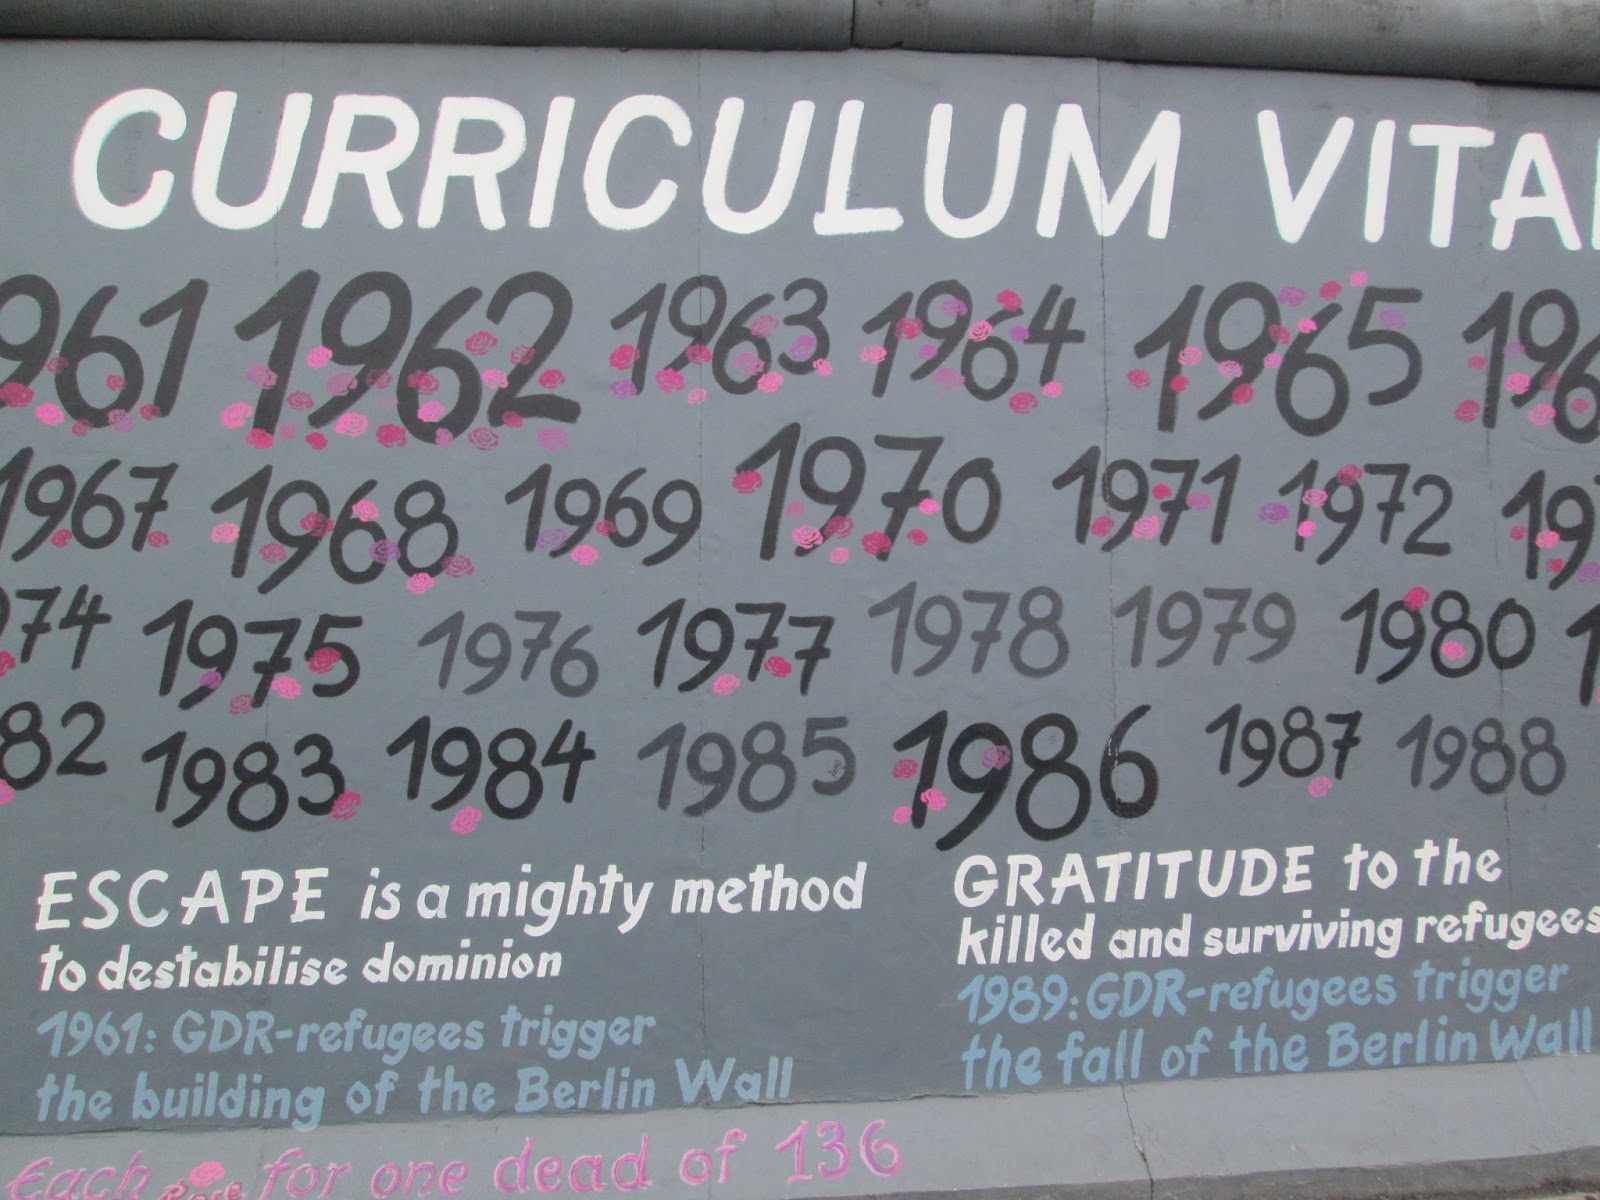 CURRICULUM VITAE
961 1962 1963 1964 1965 196
1967 1968 1969 1970 1971 1972 197
974 1975 1976 1977 1978 1979 1980 1
82 1983 1984 1985 1986 1987 1988
ESCAPE is a mighty method
to destabilise dominion
1961: GDR-refugees trigger
the building of the Berlin Wall
GRATITUDE to the
killed and surviving refugees
1989: GDR-refugees trigger
the fall of the Berlin Wall
Each Rose for one dead of 136